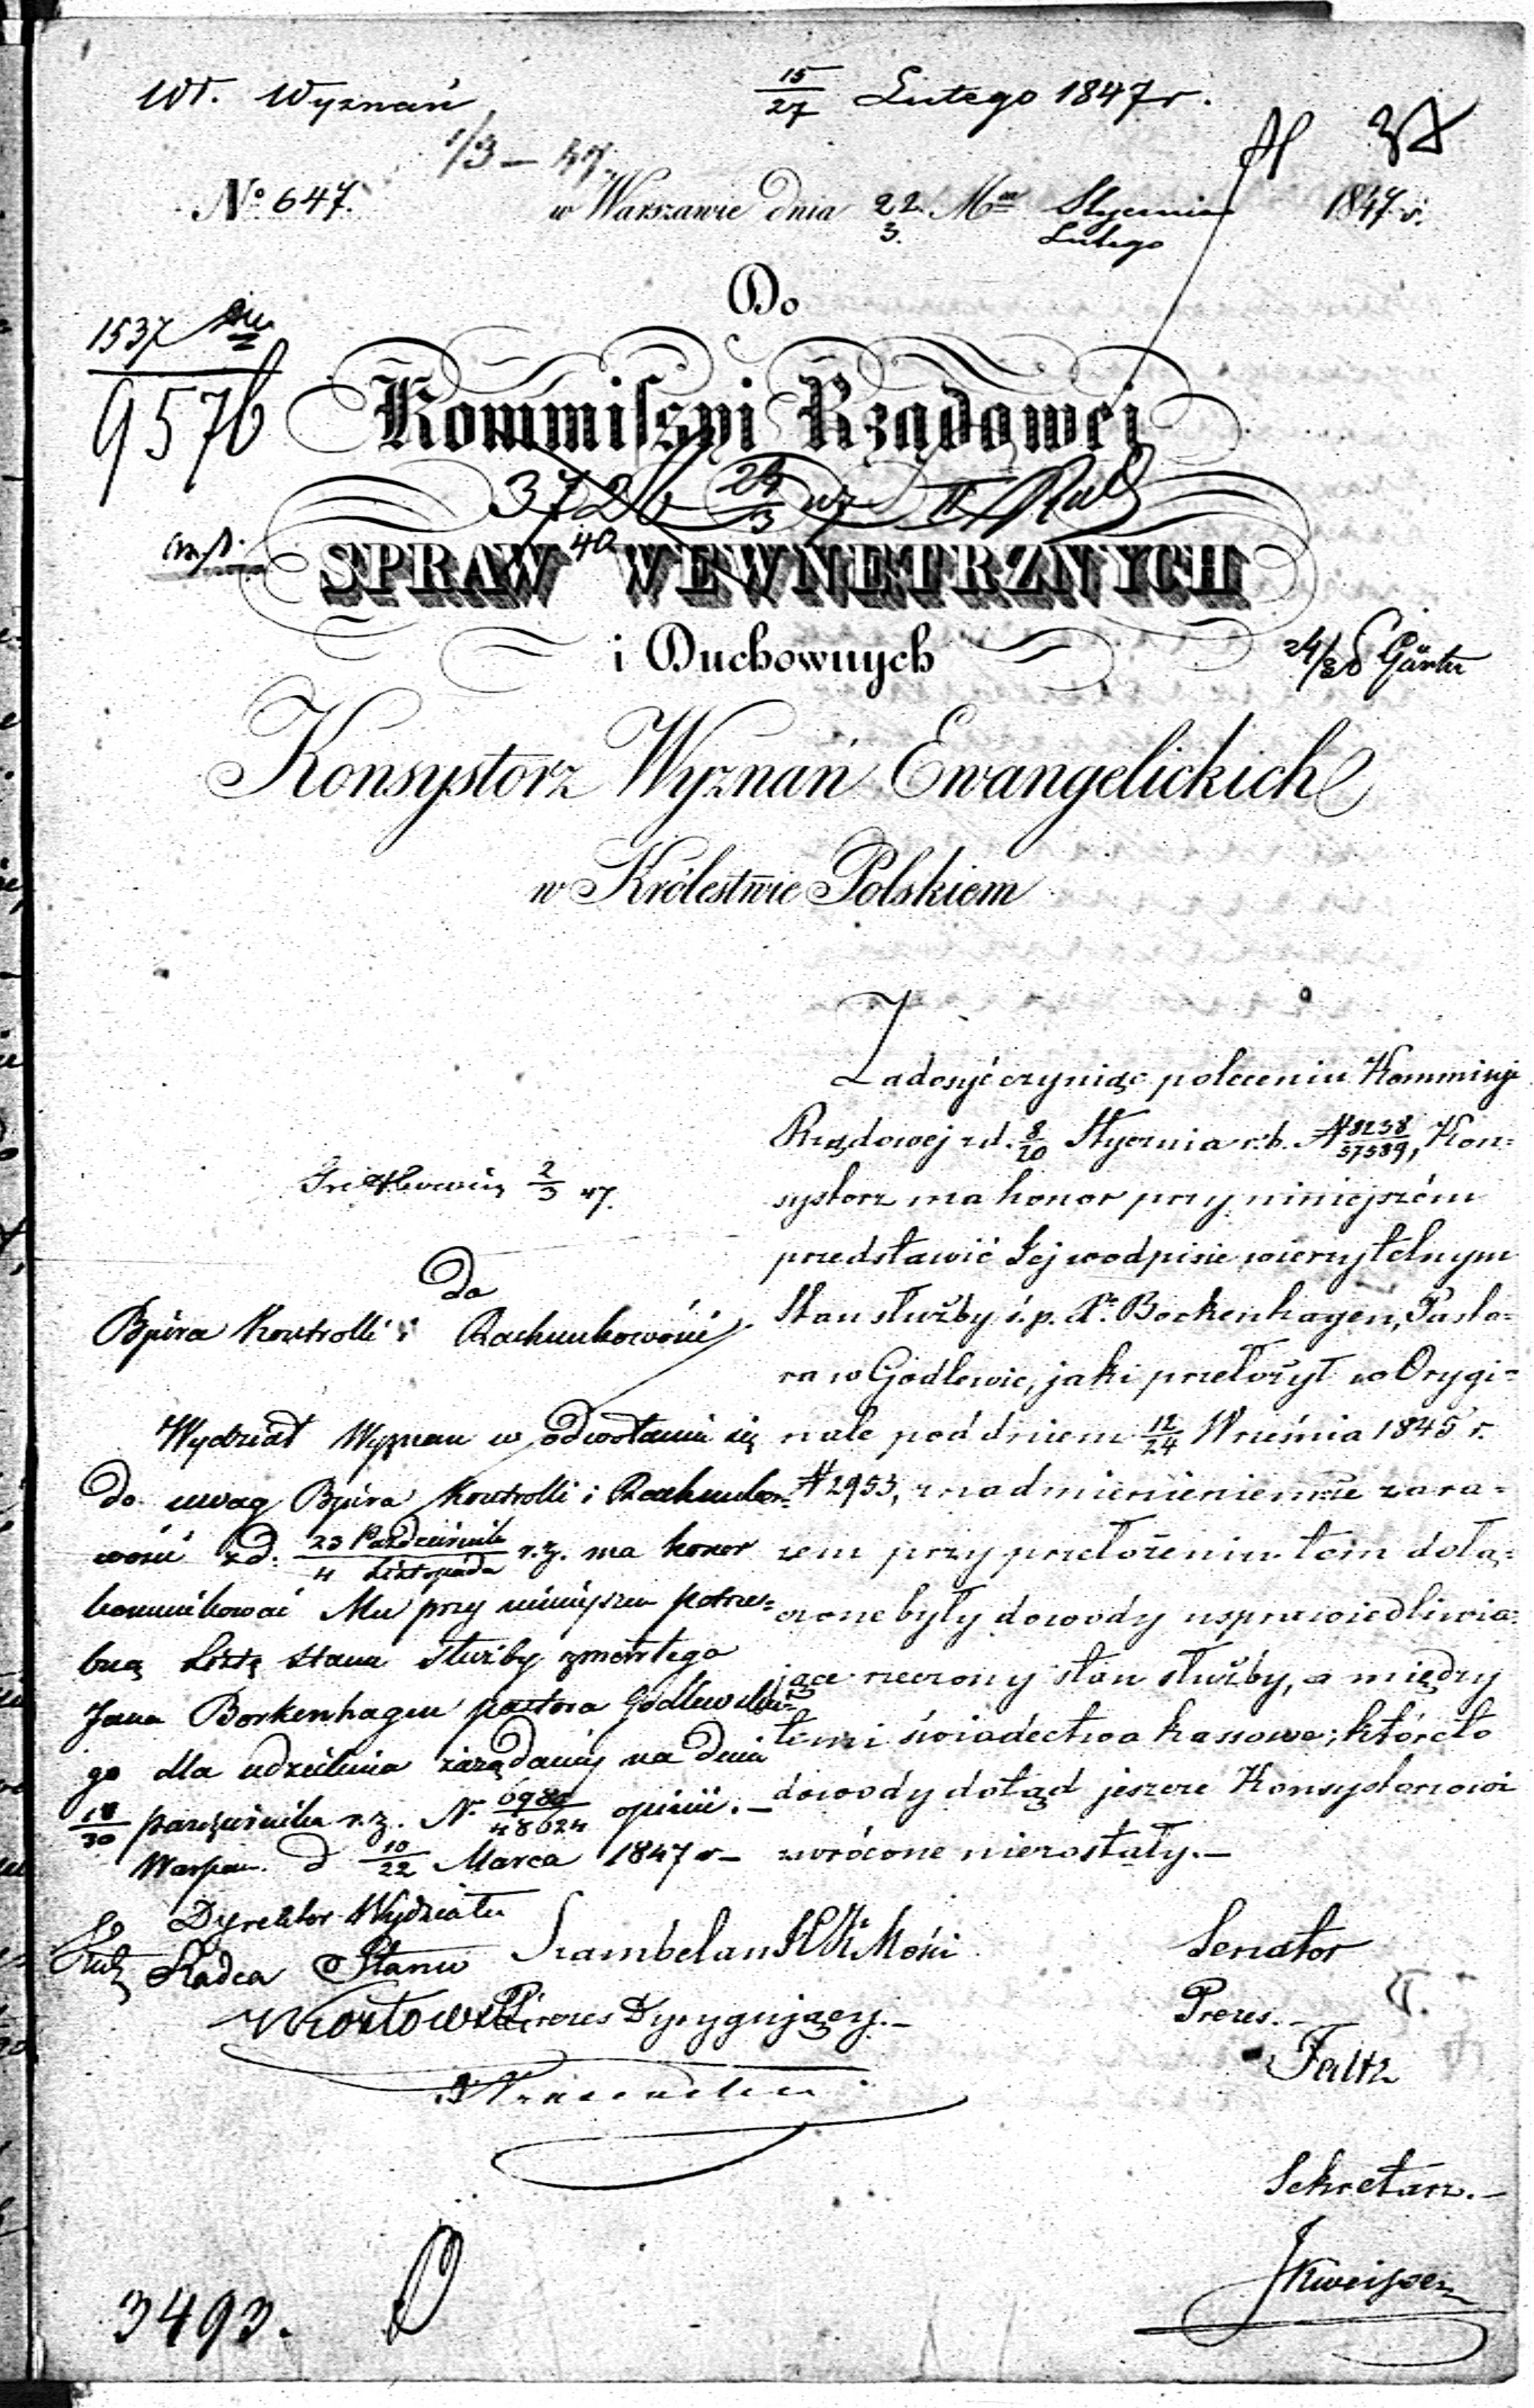 Wł. Wyznań
15/27 Lutego 1847 r.
1/3 – 47.
37
No 647.
w Warszawie dnia 22/3. Mca Stycznia/Lutego 1847 r.
Do
1537
9576
Kommiſszyi Rządowej
3726 24/3 47 II Rutz
40
SPRAW WEWNETRZNYCH
i Duchownych
24/3 Günter
Konsystorz Wyznań Ewangelickich
w Królestwie Polskiem
Zadosyć czyniąc poleceniu Kommissyi
Rządowej z d. 8/20 Stycznia r. b. N 8238/37589, Kon=
systorz ma honor przy niniejszém
przedstawić Jej w odpisie wierzytelnym
Stan służby ś. p. Xa Bockenhagen, Pasto=
ra w Godlewie, jaki przełożył w Orygi=
nale pod dniem 12/24 Września 1845 r.
N 2953, z nadmienieniem że zara=
zem przy przełożeniu tem dołą=
czone były dowody usprawiedliwia=
jące rzeczony stan służby, a między
temi świadectwa kassowe; któreto
dowody dotąd jeszcze Konsystorzowi
zwrócone niezostały. –
2/3 47.
Do
Bjura Kontrolli i Rachunkowości
Wydział Wyznań w odwołaniu się
do uwag Bjura Kontrolli i Rachunko=
wości z d. 23 Października/4 Listopada r. z. ma honor
kommunikować Mu przy niniejszem potrze=
bną Listę stanu służby zmarłego
Jana Borkenhagen pastora Godlewskie=
go dla udzielenia zażądanej na dniu
18/30 października r. z. N. 6984/48624 opinii. –
Warszawa d 10/22 Marca 1847 r –
Dyrektor Wydziału
Rutz Radca Stanu
Szambelan
Prezes Dyrygujący. –
Senator
Prezes. –
Faltz
Sekretarz. –
3493.